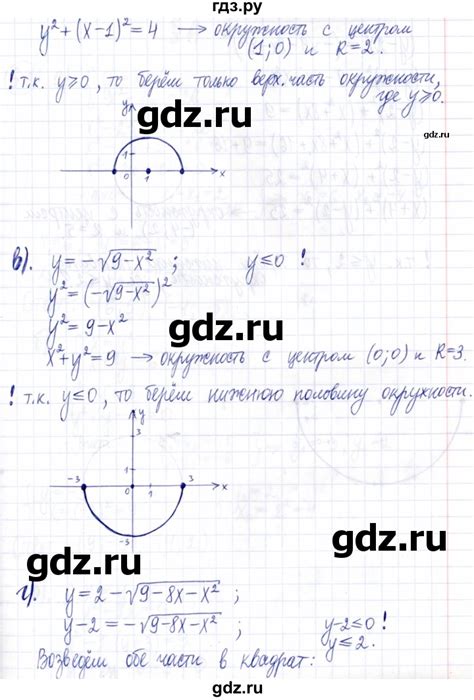 гдз.ру
y² + (x-1)² = 4 → окружность с центром
(1;0) и R=2.
! т.к. y≥0, то берём только верх. часть окружности,
где y≥0.
gdz.ru
y
1
0 1 x
gdz.ru
в). y = -√(9-x²) ; y≤0 !
y² = (-√(9-x²))²
y² = 9-x²
gdz.ru
x²+y²=9 → окружность с центром (0;0) и R=3.
! т.к. y≤0, то берём нижнюю половину окружности.
gdz.ru
y
3
1
-3 0 1 3 x
-3
gdz.ru
г). y = 2-√(9-8x-x²) ;
y-2 = -√(9-8x-x²) ; y-2≤0 !
y≤2.
Возведём обе части в квадрат:
gdz.ru